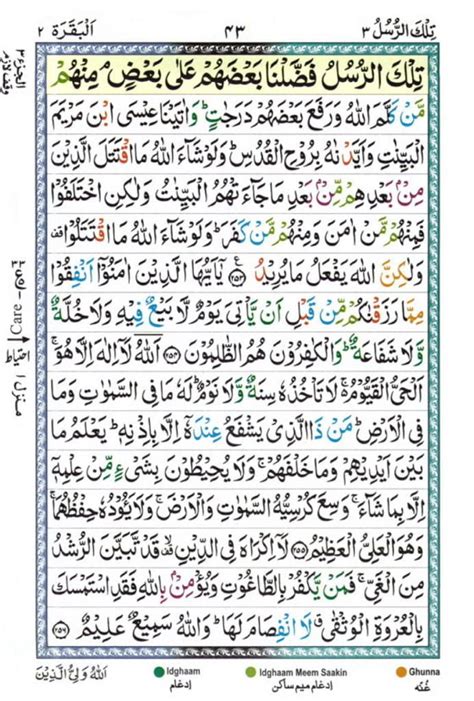 تِلْكَ الرُّسُلُ ٣ ٤٣ اَلْبَقَرَة ٢
تِلْكَ الرُّسُلُ فَضَّلْنَا بَعْضَهُمْ عَلٰى بَعْضٍ ۘ مِنْهُمْ
مَّنْ كَلَّمَ اللّٰهُ وَرَفَعَ بَعْضَهُمْ دَرَجٰتٍ ؕ وَاٰتَيْنَا عِيْسَى ابْنَ مَرْيَمَ
الْبَيِّنٰتِ وَاَيَّدْنٰهُ بِرُوْحِ الْقُدُسِ ؕ وَلَوْ شَآءَ اللّٰهُ مَا اقْتَتَلَ الَّذِيْنَ
مِنْۢ بَعْدِهِمْ مِّنْۢ بَعْدِ مَا جَآءَتْهُمُ الْبَيِّنٰتُ وَلٰكِنِ اخْتَلَفُوْا
فَمِنْهُمْ مَّنْ اٰمَنَ وَمِنْهُمْ مَّنْ كَفَرَ ؕ وَلَوْ شَآءَ اللّٰهُ مَا اقْتَتَلُوْا
وَلٰكِنَّ اللّٰهَ يَفْعَلُ مَا يُرِيْدُ ۝٢٥٣ يٰۤاَيُّهَا الَّذِيْنَ اٰمَنُوْۤا اَنْفِقُوْا
مِمَّا رَزَقْنٰكُمْ مِّنْ قَبْلِ اَنْ يَّاْتِيَ يَوْمٌ لَّا بَيْعٌ فِيْهِ وَلَا خُلَّةٌ
وَّلَا شَفَاعَةٌ ؕ وَالْكٰفِرُوْنَ هُمُ الظّٰلِمُوْنَ ۝٢٥٤ اَللّٰهُ لَاۤ اِلٰهَ اِلَّا هُوَ ۚ
الْحَيُّ الْقَيُّوْمُ ۚ لَا تَاْخُذُهٗ سِنَةٌ وَّلَا نَوْمٌ ؕ لَهٗ مَا فِي السَّمٰوٰتِ وَمَا
فِي الْاَرْضِ ؕ مَنْ ذَا الَّذِيْ يَشْفَعُ عِنْدَهٗۤ اِلَّا بِاِذْنِهٖ ؕ يَعْلَمُ مَا
بَيْنَ اَيْدِيْهِمْ وَمَا خَلْفَهُمْ ۚ وَلَا يُحِيْطُوْنَ بِشَيْءٍ مِّنْ عِلْمِهٖۤ
اِلَّا بِمَا شَآءَ ۚ وَسِعَ كُرْسِيُّهُ السَّمٰوٰتِ وَالْاَرْضَ ۚ وَلَا يَـُٔوْدُهٗ حِفْظُهُمَا ۚ
وَهُوَ الْعَلِيُّ الْعَظِيْمُ ۝٢٥٥ لَاۤ اِكْرَاهَ فِي الدِّيْنِ ۙ قَدْ تَّبَيَّنَ الرُّشْدُ
مِنَ الْغَيِّ ۚ فَمَنْ يَّكْفُرْ بِالطَّاغُوْتِ وَيُؤْمِنْۢ بِاللّٰهِ فَقَدِ اسْتَمْسَكَ
بِالْعُرْوَةِ الْوُثْقٰى ۗ لَا انْفِصَامَ لَهَا ؕ وَاللّٰهُ سَمِيْعٌ عَلِيْمٌ ۝٢٥٦
الجزء ٣
وقف لازم
Care احتیاط
منزل ١
اَللّٰهُ وَلِيُّ الَّذِيْنَ
Idghaam Idghaam Meem Saakin Ghunna
إدغام إدغام ميم ساكن غُنّه